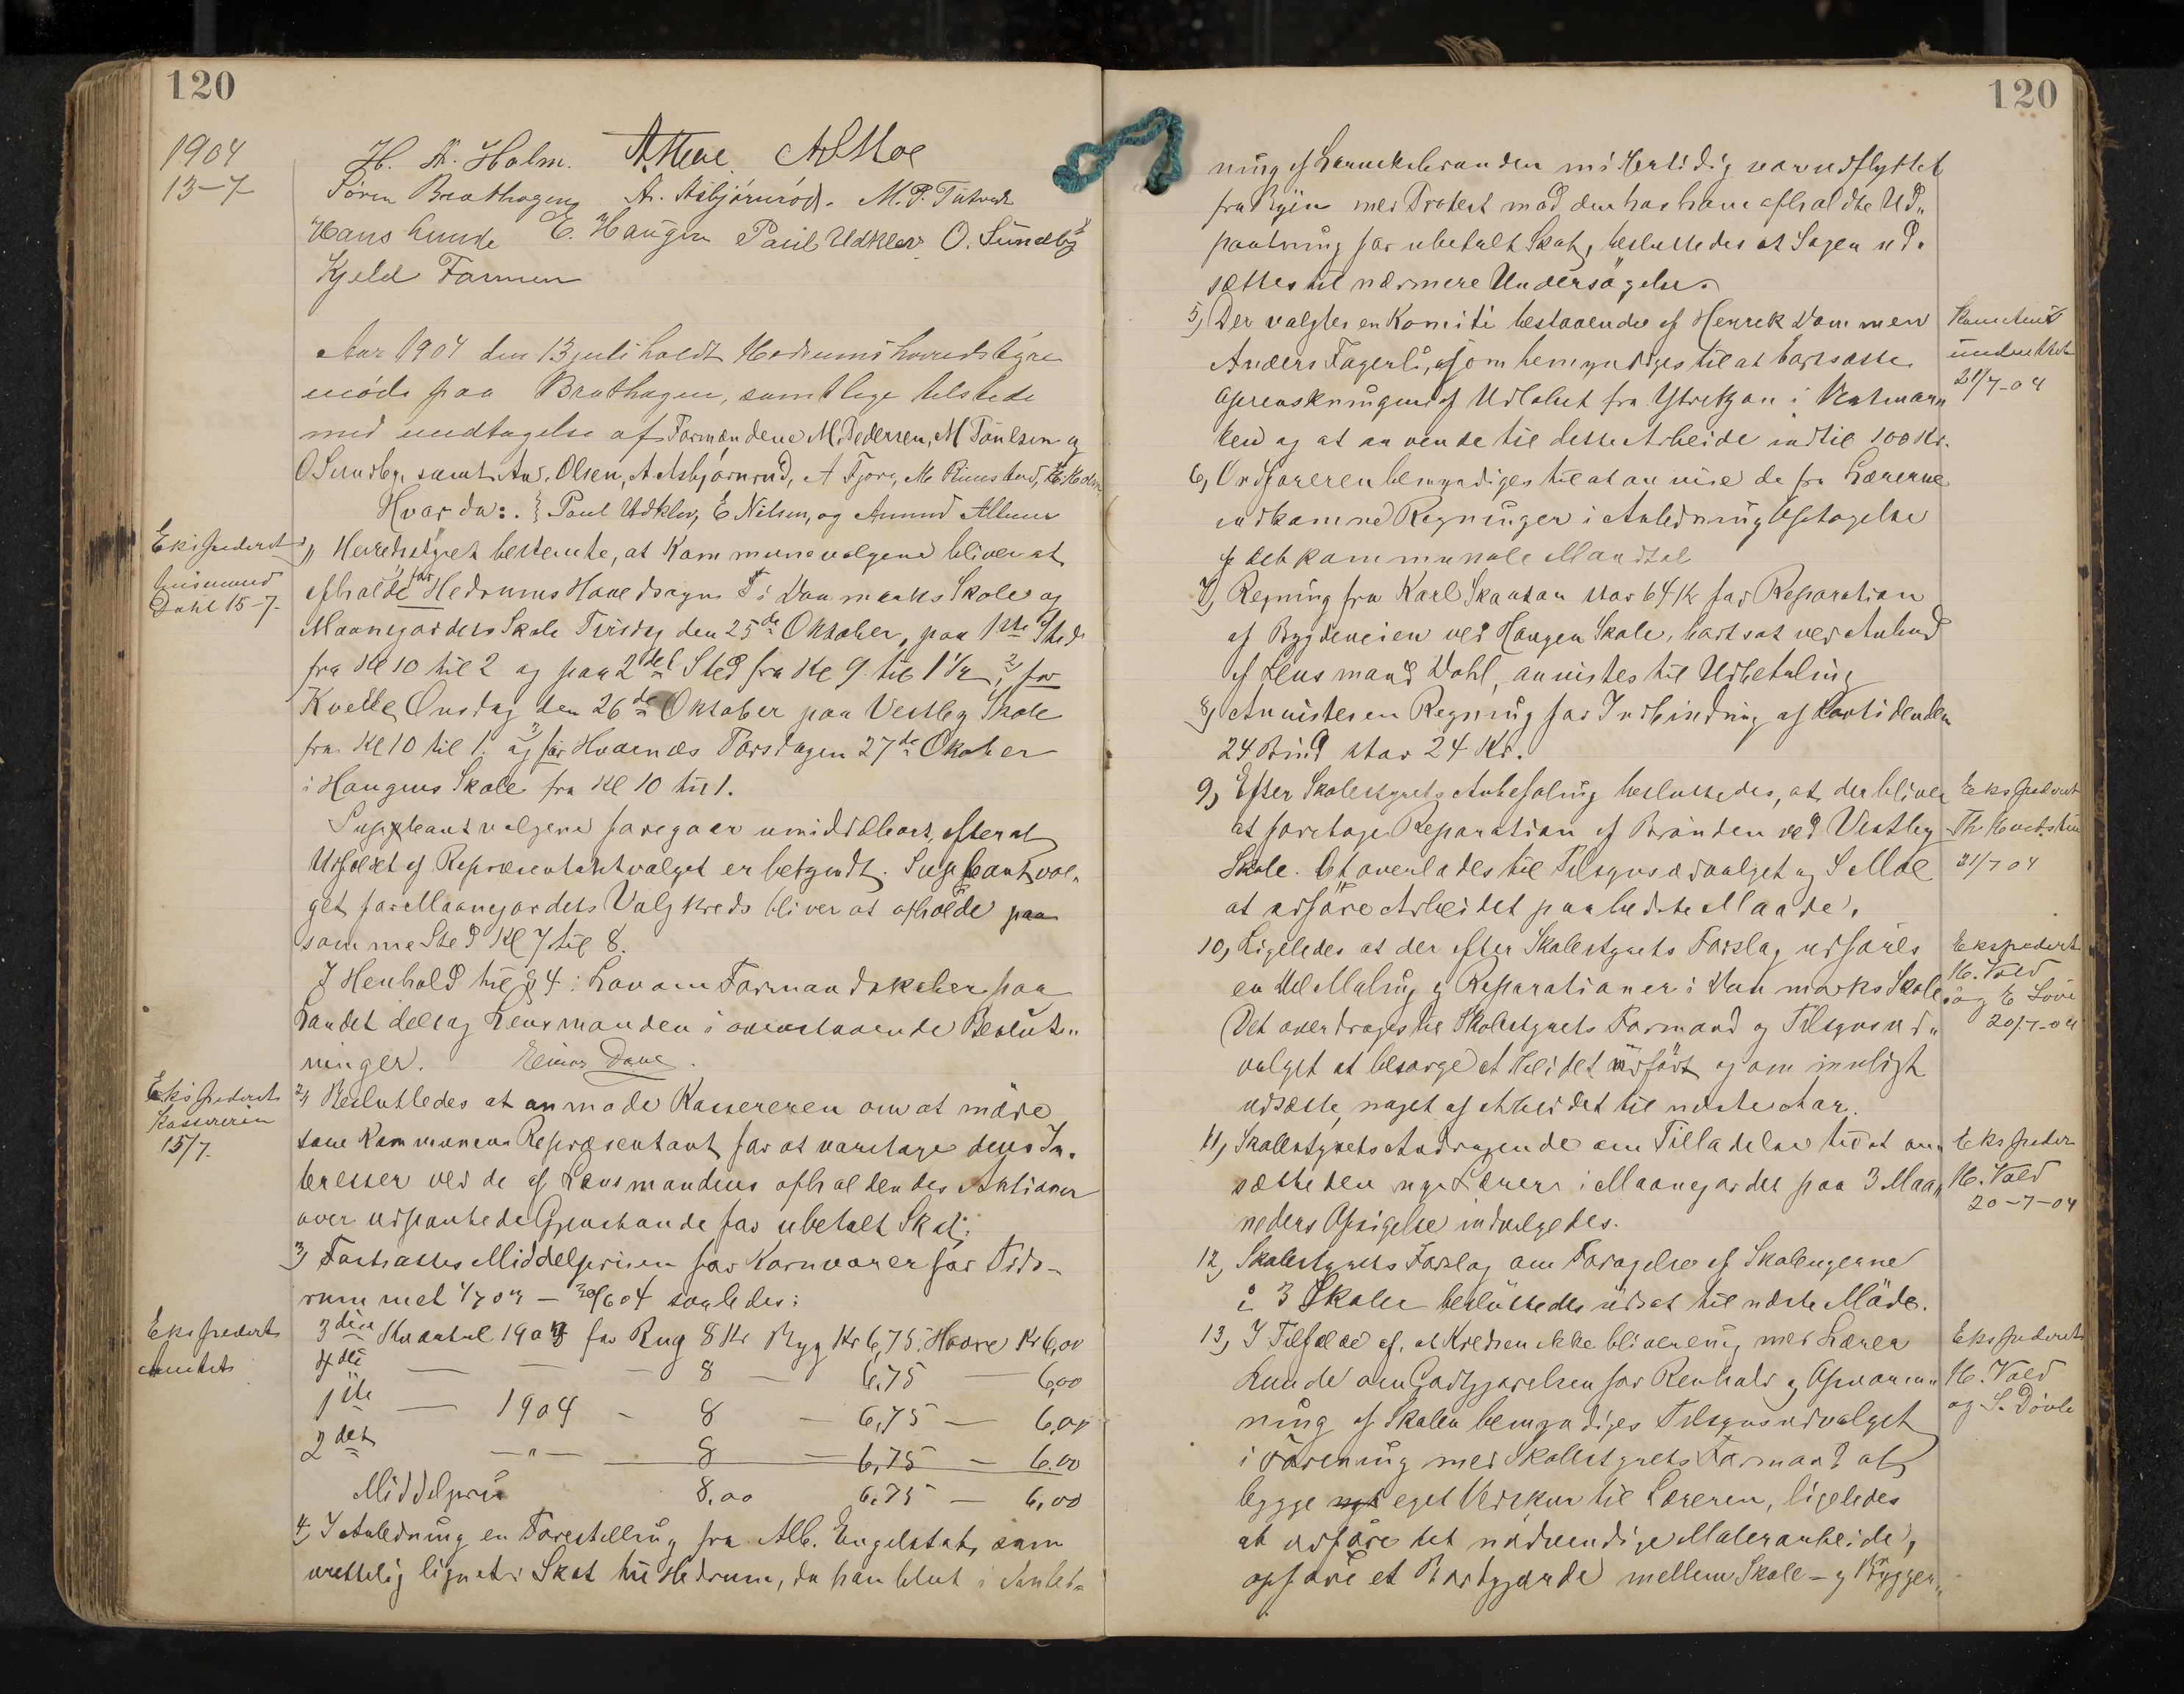 120
1904
13-7
H. A. Holm. A Moe
Søren Brathagen A. Asbjørnrød. M. P. Tutvedt
Hans Lunde E. Haugen Paul Udklev O. Sundby
Kjeld Farmen
Aar 1904 den 13 juli holdt Hedrums herredstyre
møde paa Brathagen, samtlige tilstede
med undtagelse af Formændene M. Pedersen, M Paulsen og
O Sundby, samt An. Olsen, A Asbjørnrud, A Fjore, M Rimstad, H. Holm
Hvor da: Paul Udklev, E Nilsen, og Amund Allum
Ekspedert
Lensmand
Dahl 15-7-
1, Herredstyret bestemte, at Kommunevalgene bliver at
afholde for Hedrums Hovedsogn i Danmarks Skole og
Maanejordets Skole Tirsdag den 25de Oktober, paa 1ste Sted
fra Kl 10 til 2 og paa 2det Sted fra Kl 9 til 1½, 2, for
Kvelle Onsdag den 26de Oktober paa Vestby Skole
fra Kl 10 til 1. og for Hvarnes Torsdagen 27de Oktober
i Haugens Skole fra Kl 10 til 1.
Suppleantvalgene foregaar umiddelbart efter at
Udfaldet af Repræsentantvalget er bekjendt. Suppleantval-
get for Maanejordets Valgkreds bliver at afholde paa
samme Sted Kl 7 til 8.
I Henhold til § 4 i Lov om Formandskaber paa
Landet deltog Lensmanden i ovenstaaende Beslut-
ninger.
Ekspedert
Kassereren
15/7.
2, Besluttedes at anmode Kassereren om at møde
som Kommunens Repræsentant for at varetage dens In-
teresser ved de af Lensmandens afholdendes Auktioner
over udpantede Gjenstande for ubetalt Skat;
3, Fastsattes Middelprisen for Kornvarer for Tids-
rummet 1/7 03 — 30/6 04 saaledes:
Ekspedert
Amtet
3die Kvartal 1903 for Rug 8 Kr Byg Kr 6,75, Havre Kr 6,00
4de — — 8 — 6,75 — 6,00
1ste — 1904 - 8 — 6,75 — 6,00
2det —"— 8 — 6,75 — 6.00
Middelpris 8,00 6,75 — 6,00
4, I Anledning en Forestilling fra Alb. Engelstat, som
urettelig lignet i Skat til Hedrum, da han blot i Anled-
120
ning af Larviksbranden midlertidig var udflyttet
fra Byen med Protest mod den hos ham afholdte Ud-
pantning for ubetalt Skat, besluttedes at Sagen ud-
sættes til nærmere Undersøgelse.
5, Der valgtes en Komite bestaaende af Henrek Dammen
Anders Fagerli, som bemyndiges til at bortsætte
Oprenskningen af Udløbet fra Ytretjan i Vestmar-
ken og at anvende til dette Arbeide indtil 100 Kr.
Komiteen
underrettet
21/7-04
6, Ordføreren bemyndiges til at anvise de fra Lærerne
indkomne Regninger i Anledning Optagelse
af det kommunale Mandtal
7, Regning fra Karl Skaatan stor 64 Kr for Reparation
af Bygdeveien ved Haugen Skole, bortsat ved Anbud
af Lensmand Dahl, anvistes til Udbetaling
8, Anvistes en Regning for Indbinding af Lovtidenden
24 Bind stor 24 Kr.
9, Efter Skolestyrets Anbefaling besluttedes, at der bliver
at foretage Reparation af Brønden ved Vestby
Skole. Det overlades til Tilsynsudvalget og S Moe
at udføre Arbeidet paa bedste Maade.
Ekspedert
21/7 04
10, Ligeledes at der efter Skolestyrets Forslag udføres
en Del Maling og Reparationer i Danmarks Skole
(Det overdrages til Skolestyrets Formand og Tilsynsud-
valget at besørge Arbeidet udført og om muligt
udsætte noget af Arbeidet til næste Aar.
Ekspedert
H. Vold
og E
20/7-04
11, Skolestyrets Andragende om Tilladelse til at an-
sætte den nye Lærer i Maanejordet paa 3 Maa-
neders Opsigelse indvilgedes.
Ekspeder
H. Vold
20-7-04
12, Skolestyrets Forslag om Forøgelse af Skoleugerne
i 3 Skoler besluttedes udsat til næste Møde.
13, I Tilfælde af, at Kredsen ikke bliver enig med Lærer
Lunde om Godtgjørelsen for Renhold og Opvarm-
ning af Skolen bemyndiges Tilsynsudvalget
i Forening med Skolestyrets Formand at
bygge eget Vedskur til Læreren, ligeledes
at udføre det nødvendige Malerarbeide,
opføre et Bordgjærde mellem Skole- og Bygger-
Ekspedert
H. Vold
og S.